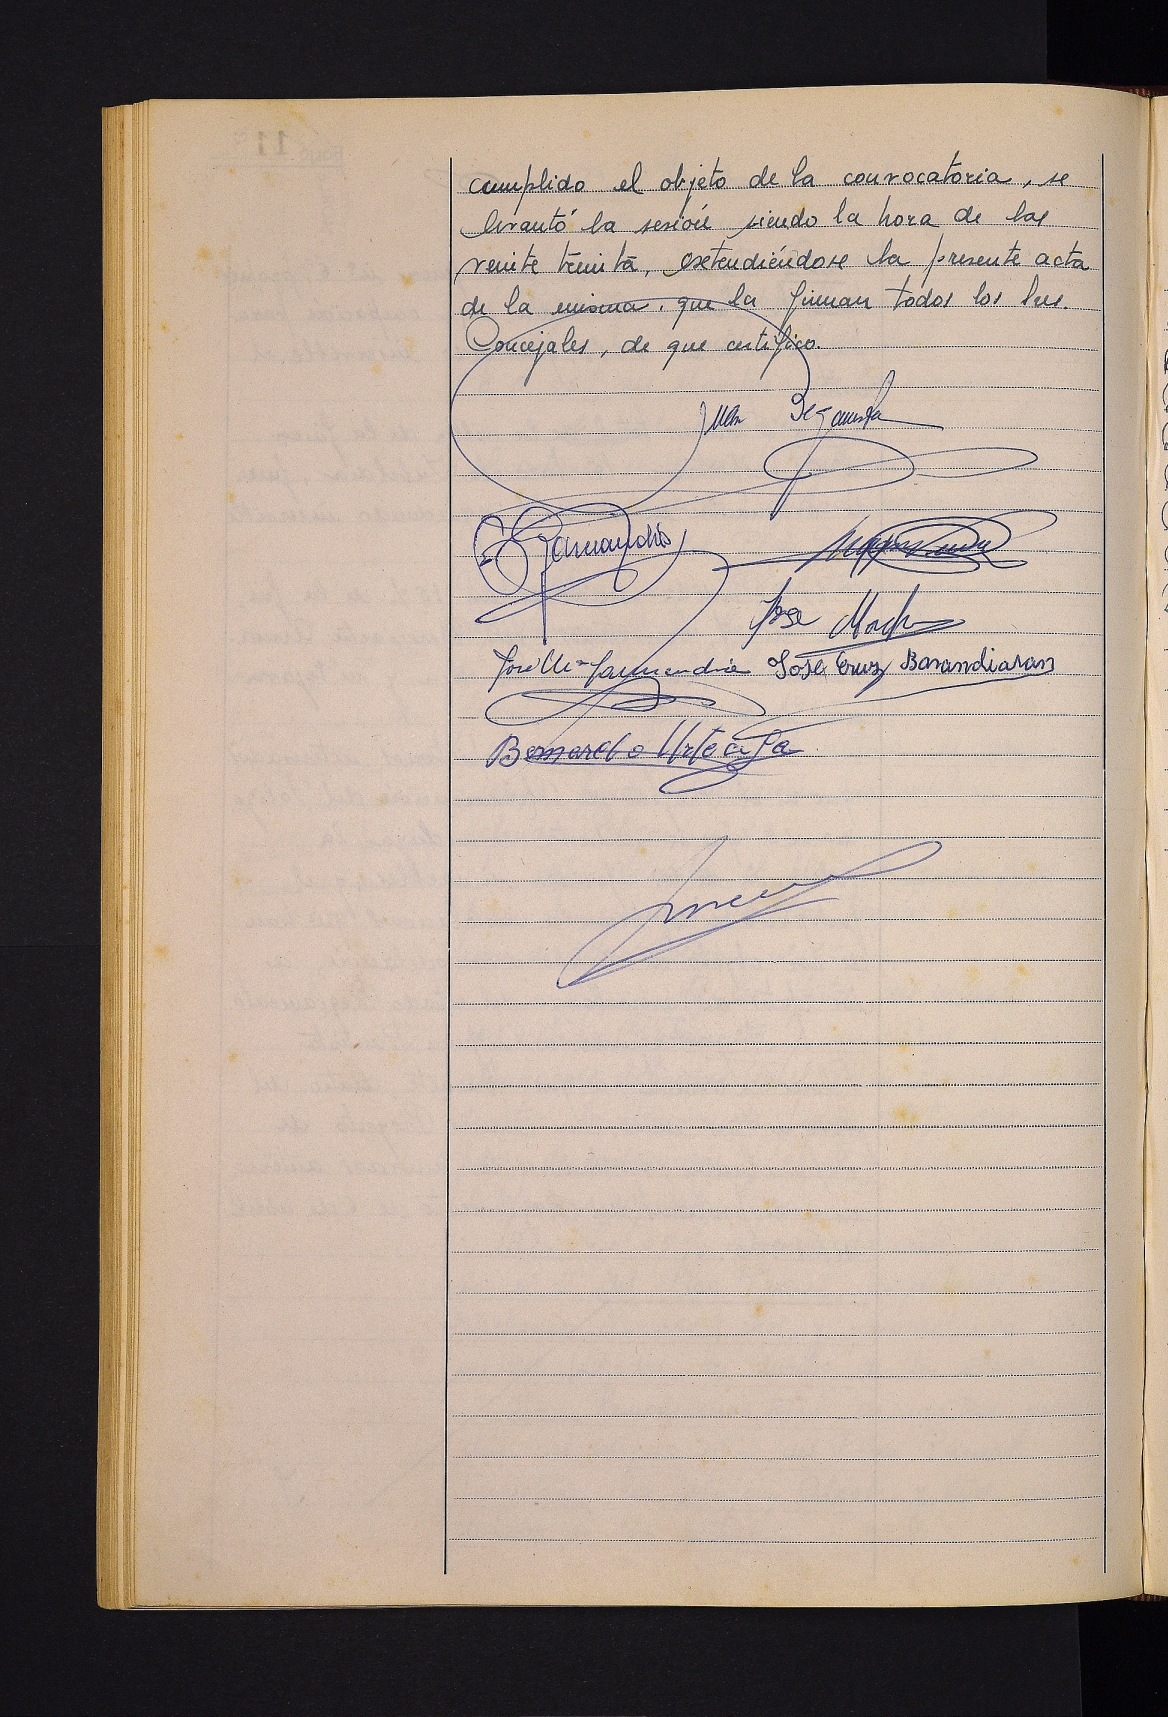 cumplido el objeto de la convocatoria, se
levantó la sesión siendo la hora de las
veinte treinta, extendiéndose la presente acta
de la misma, que la firman todos los Sres.
Concejales, de que certifico.
Juan
Garmendia
José
José Mª Garmendia José Cruz Barandiaran
Bernardo Urteaga